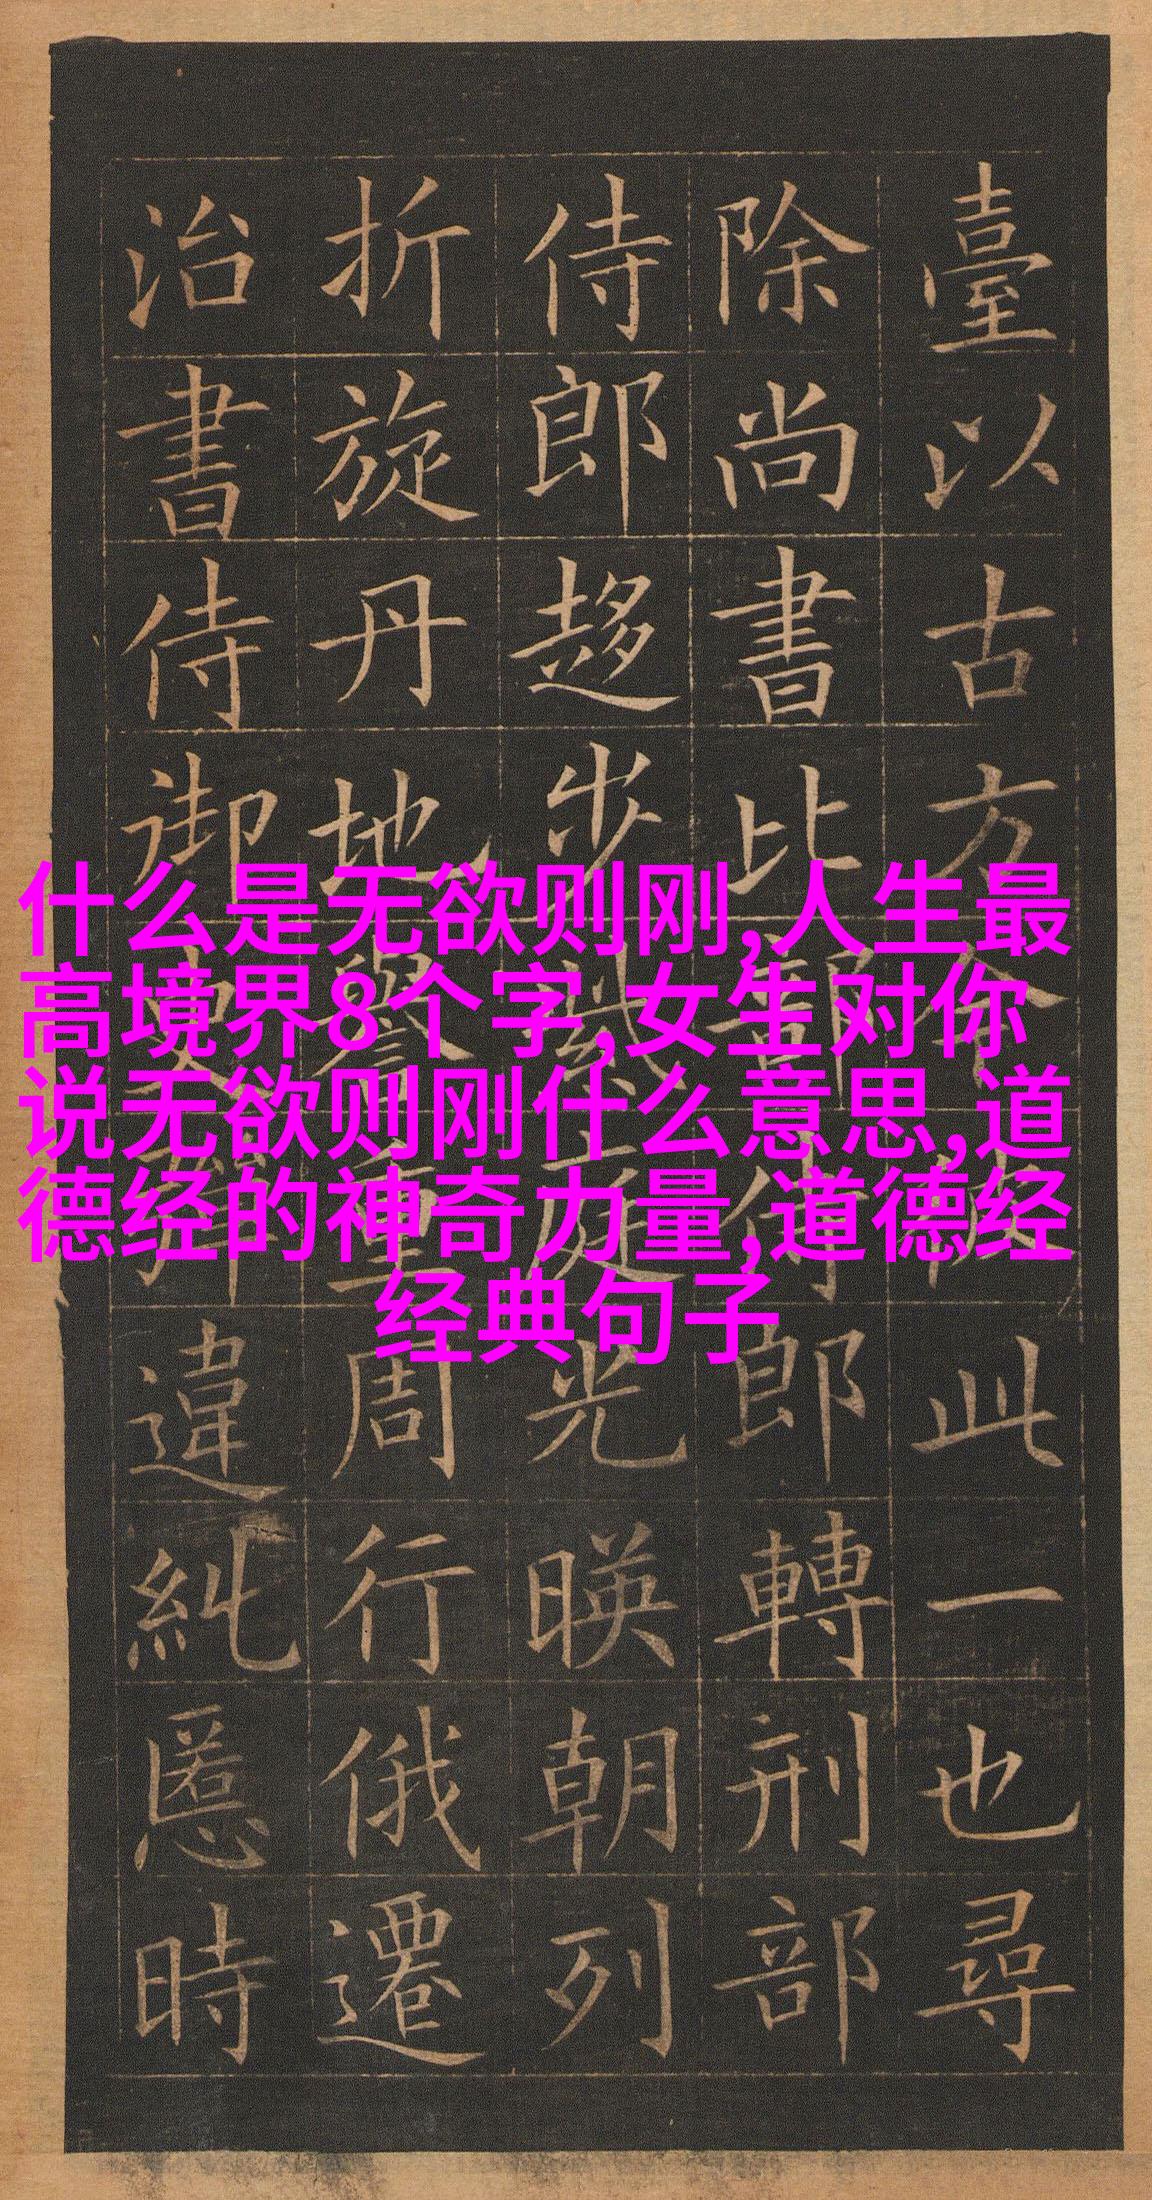 臺以古方今彼此一也尋
除尚書比部侍郎轉刑部
侍郎趍步紫庭光暎朝列
折旋丹地譽重周行俄遷
治書侍御史彈違糺慝時
什么是无欲则刚,人生最
高境界8个字,女生对你
说无欲则刚什么意思,道
德经的神奇力量,道德经
经典句子